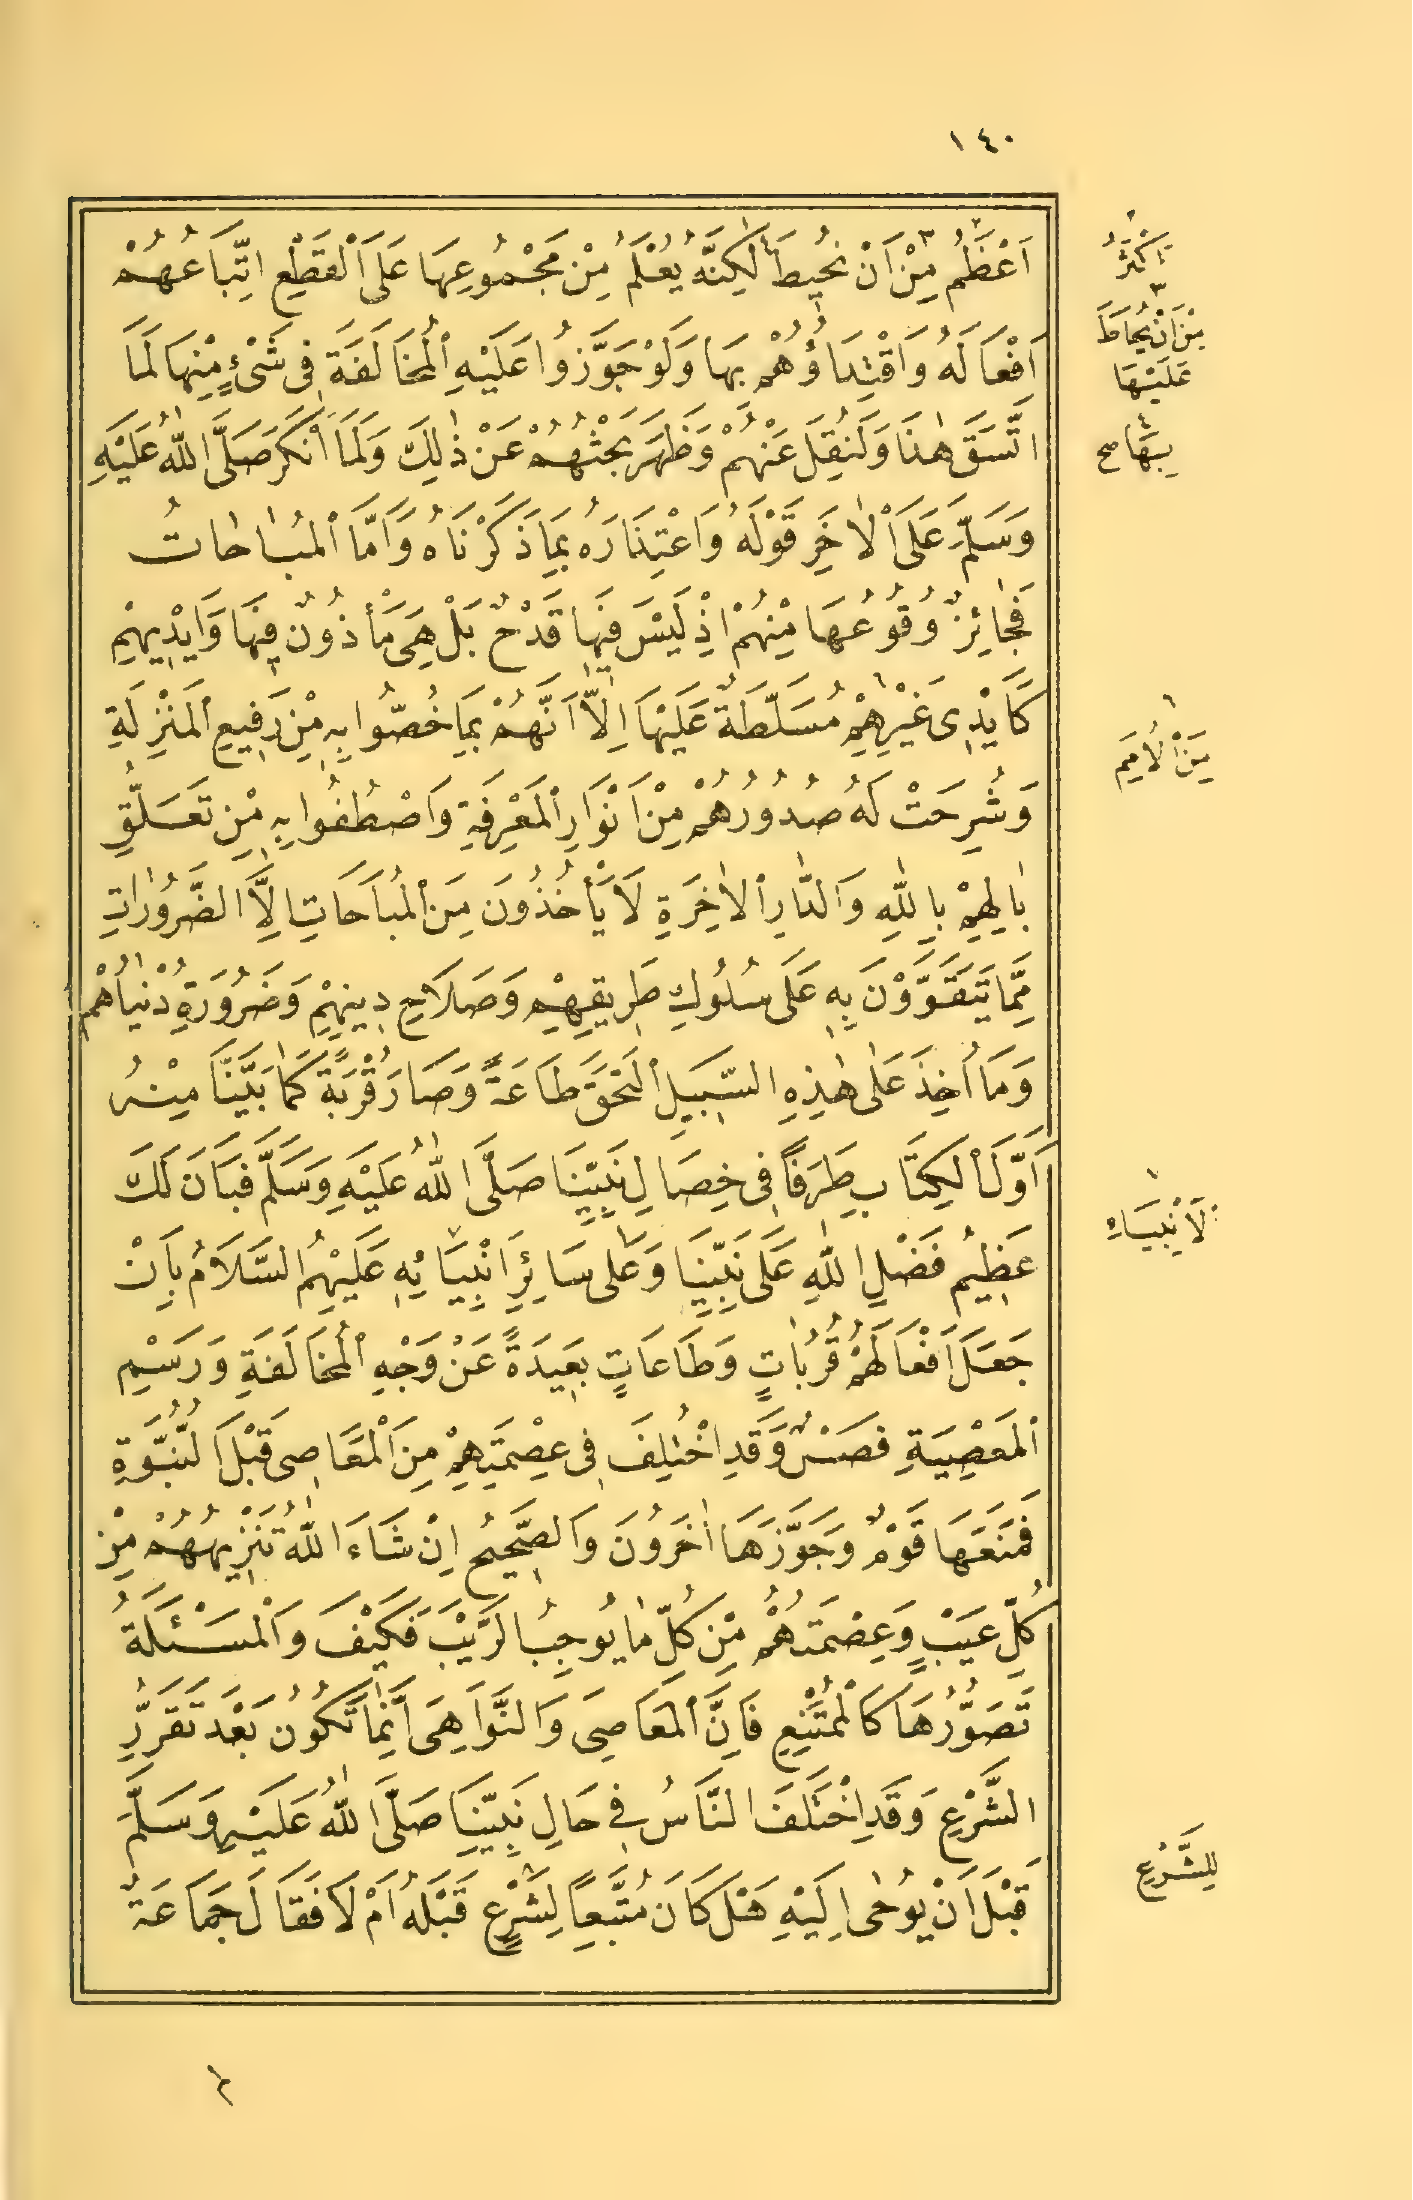 ١٤٠
اَعْظَمُ مِنْ اَنْ نُحِيطَ لٰكِنَّهُ يُعْلَمُ مِنْ مَجْمُوعِهَا عَلَى الْقَطْعِ اتِّبَاعُهُمْ
اَفْعَالَهُ وَاقْتِدَاؤُهُمْ بِهَا وَلَوْ جَوَّزُوا عَلَيْهِ الْمُخَالَفَةَ فِى شَىْءٍ مِنْهَا لَمَا
اتَّسَقَ هٰذَا وَلَنُقِلَ عَنْهُمْ وَظَهَرَ بَحْثُهُمْ عَنْ ذٰلِكَ وَلَمَا اَنْكَرَ صَلَّى اللّٰهُ عَلَيْهِ
وَسَلَّمَ عَلَى الْاٰخَرِ قَوْلَهُ وَاعْتِذَارَهُ بِمَا ذَكَرْنَاهُ وَاَمَّا الْمُبٰاحٰاتُ
فَجٰائِزٌ وُقُوعُهَا مِنْهُمْ اِذْ لَيْسَ فِيهٰا قَدْحٌ بَلْ هِىَ مَأْذُونٌ فِيهَا وَاَيْدِيهِمْ
كَاَيْدِى غَيْرِهِمْ مُسَلَّطَةٌ عَلَيْهَا اِلَّا اَنَّهُمْ بِمَا خُصُّوا بِهِ مِنْ رَفِيعِ الْمَنْزِلَةِ
وَشُرِحَتْ لَهُ صُدُورُهُمْ مِنْ اَنْوَارِ الْمَعْرِفَةِ وَاصْطُفُوا بِهِ مِنْ تَعَلُّقِ
بٰالِهِمْ بِاللّٰهِ وَالدَّارِ الْاٰخِرَةِ لَا يَأْخُذُونَ مِنَ الْمُبَاحَاتِ اِلَّا الضَّرُورٰاتِ
مِمَّا يَتَقَوَّوْنَ بِهِ عَلَى سُلُوكِ طَرِيقِهِمْ وَصَلَاحِ دِينِهِمْ وَضَرُورَةِ دُنْيٰاهُمْ
وَمَا اُخِذَ عَلٰى هٰذِهِ السَّبِيلِ الْتَحَقَ طَاعَةً وَصَارَ قُرْبَةً كَمٰا بَيَّنَّا مِنْهُ
اَوَّلَ الْكِتَابِ طَرَفًا فِى خِصَالِ نَبِيِّنَا صَلَّى اللّٰهُ عَلَيْهِ وَسَلَّمَ فَبَانَ لَكَ
عَظِيمُ فَضْلِ اللّٰهِ عَلَى نَبِيِّنَا وَعَلَى سَائِرِ اَنْبِيَائِهِ عَلَيْهِمُ السَّلَامُ بِاَنْ
جَعَلَ اَفْعَالَهُمْ قُرُبٰاتٍ وَطَاعَاتٍ بَعِيدَةً عَنْ وَجْهِ الْمُخَالَفَةِ وَرَسْمِ
الْمَعْصِيَةِ فَصَسْلٌ وَقَدِ اخْتُلِفَ فِى عِصْمَتِهِمْ مِنَ الْمَعَاصِى قَبْلَ النُّبُوَّةِ
فَمَنَعَهَا قَوْمٌ وَجَوَّزَهَا اٰخَرُونَ وَالصَّحِيحُ اِنْ شَاءَ اللّٰهُ تَنْزِيهُهُمْ مِنْ
كُلِّ عَيْبٍ وَعِصْمَتُهُمْ مِنْ كُلِّ مٰا يُوجِبُ الرَّيْبَ فَكَيْفَ وَالْمَسْئَلَةُ
تَصَوُّرُهَا كَالْمُمْتَنِعِ فَاِنَّ الْمَعَاصِىَ وَالنَّوَاهِىَ اِنَّمٰا تَكُونُ بَعْدَ تَقَرُّرِ
الشَّرْعِ وَقَدِ اخْتَلَفَ النَّاسُ فِى حَالِ نَبِيِّنَا صَلَّى اللّٰهُ عَلَيْهِ وَسَلَّمَ
قَبْلَ اَنْ يُوحٰى اِلَيْهِ هَلْ كَانَ مُتَّبِعًا لِشَرْعٍ قَبْلَهُ اَمْ لَا فَقَالَ جَمَاعَةٌ
٢
اَكْثَرُ
٣
مِنْ اَنْ يُحَاطَ
عَلَيْهَا
٤
بِهَا صح
٦
مِنَ الْاُمَمِ
١
لْاَنْبِيَاءِ
لِلشَّرْعِ
٢